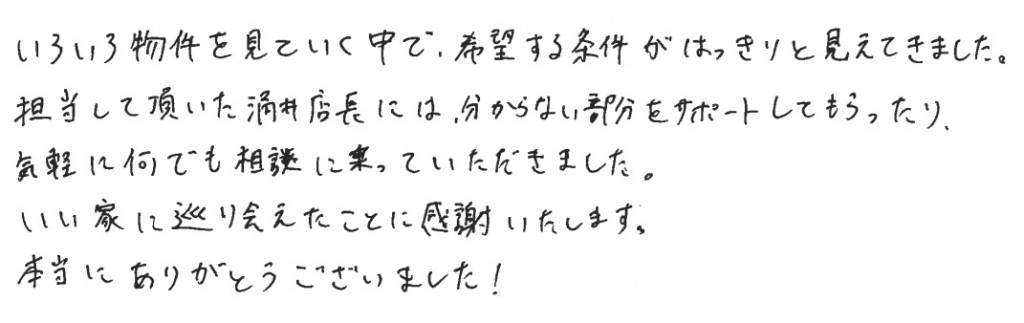 いろいろ物件を見ていく中で、希望する条件がはっきりと見えてきました。
担当して頂いた涌井店長には、分からない部分をサポートしてもらったり、
気軽に何でも相談に乗っていただきました。
いい家に巡り会えたことに感謝いたします。
本当にありがとうございました！